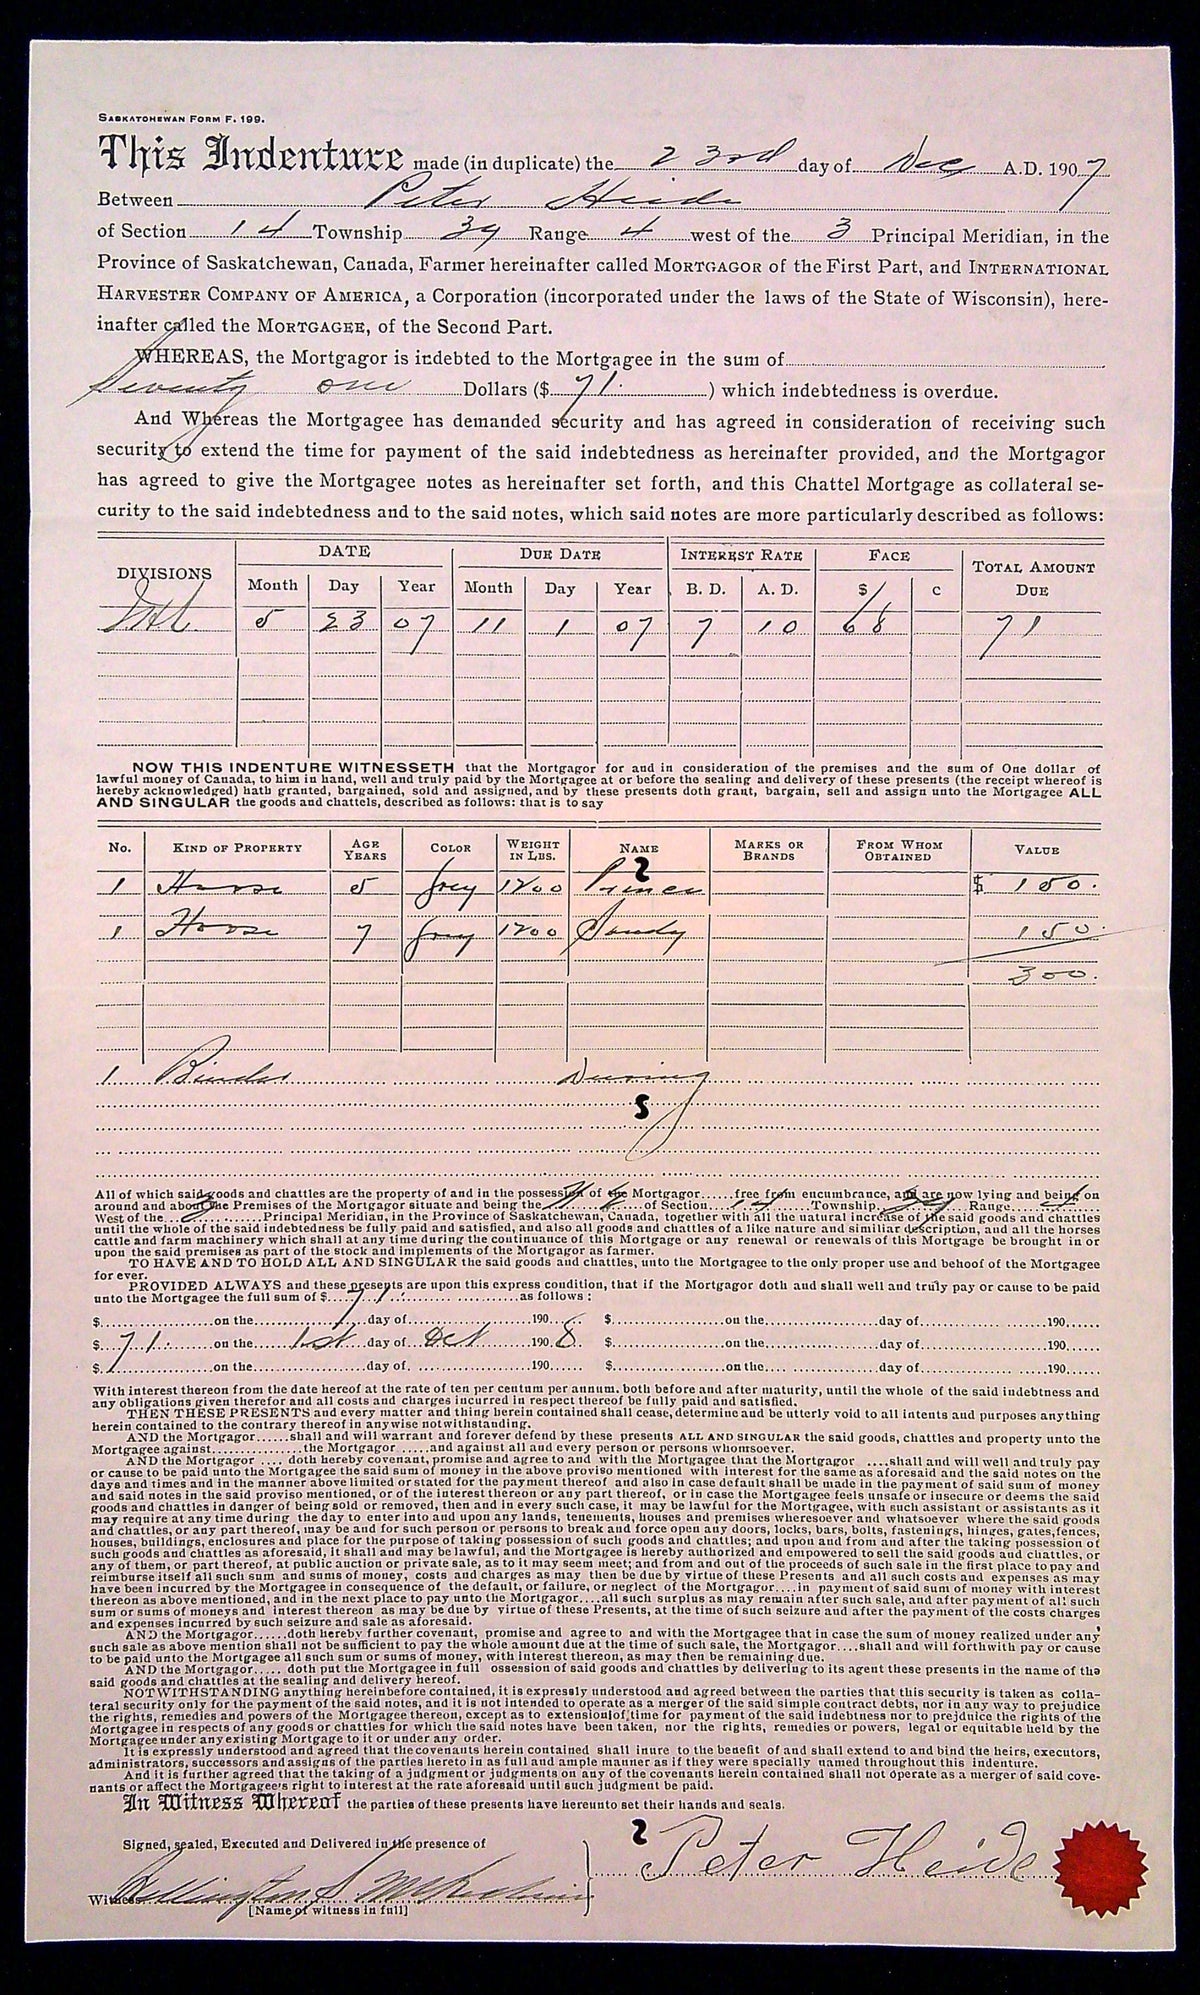 SASKATCHEWAN FORM F. 199.
This Indenture made (in duplicate) the 23rd day of Dec A.D. 1907
Between Peter Heide
of Section 14 Township 39 Range 4 west of the 3 Principal Meridian, in the
Province of Saskatchewan, Canada, Farmer hereinafter called MORTGAGOR of the First Part, and INTERNATIONAL
HARVESTER COMPANY OF AMERICA, a Corporation (incorporated under the laws of the State of Wisconsin), here-
inafter called the MORTGAGEE, of the Second Part.
WHEREAS, the Mortgagor is indebted to the Mortgagee in the sum of
Seventy one Dollars ($ 71. ) which indebtedness is overdue.
And Whereas the Mortgagee has demanded security and has agreed in consideration of receiving such
security to extend the time for payment of the said indebtedness as hereinafter provided, and the Mortgagor
has agreed to give the Mortgagee notes as hereinafter set forth, and this Chattel Mortgage as collateral se-
curity to the said indebtedness and to the said notes, which said notes are more particularly described as follows:
DIVISIONS DATE DUE DATE INTEREST RATE FACE TOTAL AMOUNT DUE
Month Day Year Month Day Year B. D. A. D. $ c
5 23 07 11 1 07 7 10 68 71
NOW THIS INDENTURE WITNESSETH that the Mortgagor for and in consideration of the premises and the sum of One dollar of
lawful money of Canada, to him in hand, well and truly paid by the Mortgagee at or before the sealing and delivery of these presents (the receipt whereof is
hereby acknowledged) hath granted, bargained, sold and assigned, and by these presents doth grant, bargain, sell and assign unto the Mortgagee ALL
AND SINGULAR the goods and chattels, described as follows: that is to say
No. KIND OF PROPERTY AGE YEARS COLOR WEIGHT IN LBS. NAME MARKS OR BRANDS FROM WHOM OBTAINED VALUE
2
1 Horse 5 Grey 1200 Prince $ 150.
1 Horse 7 Grey 1200 Sandy 150.
300.
1 Binder Deering
S
All of which said goods and chattles are the property of and in the possession of the Mortgagor......free from encumbrance, and are now lying and being on
around and about the Premises of the Mortgagor situate and being the of Section 14 Township 39 Range 4
West of the 3 Principal Meridian, in the Province of Saskatchewan, Canada, together with all the natural increase of the said goods and chattles
until the whole of the said indebtedness be fully paid and satisfied, and also all goods and chattles of a like nature and similiar description, and all the horses
cattle and farm machinery which shall at any time during the continuance of this Mortgage or any renewal or renewals of this Mortgage be brought in or
upon the said premises as part of the stock and implements of the Mortgagor as farmer.
TO HAVE AND TO HOLD ALL AND SINGULAR the said goods and chattles, unto the Mortgagee to the only proper use and behoof of the Mortgagee
for ever.
PROVIDED ALWAYS and these presents are upon this express condition, that if the Mortgagor doth and shall well and truly pay or cause to be paid
unto the Mortgagee the full sum of $ 71. as follows:
$ on the day of 190 $ on the day of 190
$ 71. on the 1st day of Oct 1908 $ on the day of 190
$ on the day of 190 $ on the day of 190
With interest thereon from the date hereof at the rate of ten per centum per annum, both before and after maturity, until the whole of the said indebtedness and
any obligations given therefor and all costs and charges incurred in respect thereof be fully paid and satisfied.
THEN THESE PRESENTS and every matter and thing herein contained shall cease, determine and be utterly void to all intents and purposes anything
herein contained to the contrary thereof in anywise notwithstanding.
AND the Mortgagor......shall and will warrant and forever defend by these presents ALL AND SINGULAR the said goods, chattles and property unto the
Mortgagee against................the Mortgagor .....and against all and every person or persons whomsoever.
AND the Mortgagor .... doth hereby covenant, promise and agree to and with the Mortgagee that the Mortgagor ....shall and will well and truly pay
or cause to be paid unto the Mortgagee the said sum of money in the above proviso mentioned with interest for the same as aforesaid and the said notes on the
days and times and in the manner above limited or stated for the payment thereof and also in case default shall be made in the payment of said sum of money
and said notes in the said proviso mentioned, or of the interest thereon or any part thereof, or in case the Mortgagee feels unsafe or insecure or deems the said
goods and chattles in danger of being sold or removed, then and in every such case, it may be lawful for the Mortgagee, with such assistant or assistants as it
may require at any time during the day to enter into and upon any lands, tenements, houses and premises wheresoever and whatsoever where the said goods
and chattles, or any part thereof, may be and for such person or persons to break and force open any doors, locks, bars, bolts, fastenings, hinges, gates, fences,
houses, buildings, enclosures and place for the purpose of taking possession of such goods and chattles; and upon and from and after the taking possession of
such goods and chattles as aforesaid, it shall and may be lawful, and the Mortgagee is hereby authorized and empowered to sell the said goods and chattles, or
any of them, or part thereof, at public auction or private sale, as to it may seem meet; and from and out of the proceeds of such sale in the first place to pay and
reimburse itself all such sum and sums of money, costs and charges as may then be due by virtue of these Presents and all such costs and expenses as may
have been incurred by the Mortgagee in consequence of the default, or failure, or neglect of the Mortgagor....in payment of said sum of money with interest
thereon as above mentioned, and in the next place to pay unto the Mortgagor....all such surplus as may remain after such sale, and after payment of all such
sum or sums of moneys and interest thereon as may be due by virtue of these Presents, at the time of such seizure and after the payment of the costs charges
and expenses incurred by such seizure and sale as aforesaid.
AND the Mortgagor......doth hereby further covenant, promise and agree to and with the Mortgagee that in case the sum of money realized under any
such sale as above mention shall not be sufficient to pay the whole amount due at the time of such sale, the Mortgagor....shall and will forthwith pay or cause
to be paid unto the Mortgagee all such sum or sums of money, with interest thereon, as may then be remaining due.
AND the Mortgagor..... doth put the Mortgagee in full ossession of said goods and chattles by delivering to its agent these presents in the name of the
said goods and chattles at the sealing and delivery hereof.
NOTWITHSTANDING anything hereinbefore contained, it is expressly understood and agreed between the parties that this security is taken as colla-
teral security only for the payment of the said notes, and it is not intended to operate as a merger of the said simple contract debts, nor in any way to prejudice
the rights, remedies and powers of the Mortgagee thereon, except as to extension of time for payment of the said indebtness nor to prejduice the rights of the
Mortgagee in respects of any goods or chattles for which the said notes have been taken, nor the rights, remedies or powers, legal or equitable held by the
Mortgagee under any existing Mortgage to it or under any order.
It is expressly understood and agreed that the covenants herein contained shall inure to the benefit of and shall extend to and bind the heirs, executors,
administrators, successors and assigns of the parties hereto in as full and ample manner as if they were specially named throughout this indenture.
And it is further agreed that the taking of a judgment or judgments on any of the covenants herein contained shall not operate as a merger of said cove-
nants or affect the Mortgagee's right to interest at the rate aforesaid until such judgment be paid.
In Witness Whereof the parties of these presents have hereunto set their hands and seals.
Signed, sealed, Executed and Delivered in the presence of
2 Peter Heide
Witness Wellington S.
[Name of witness in full]